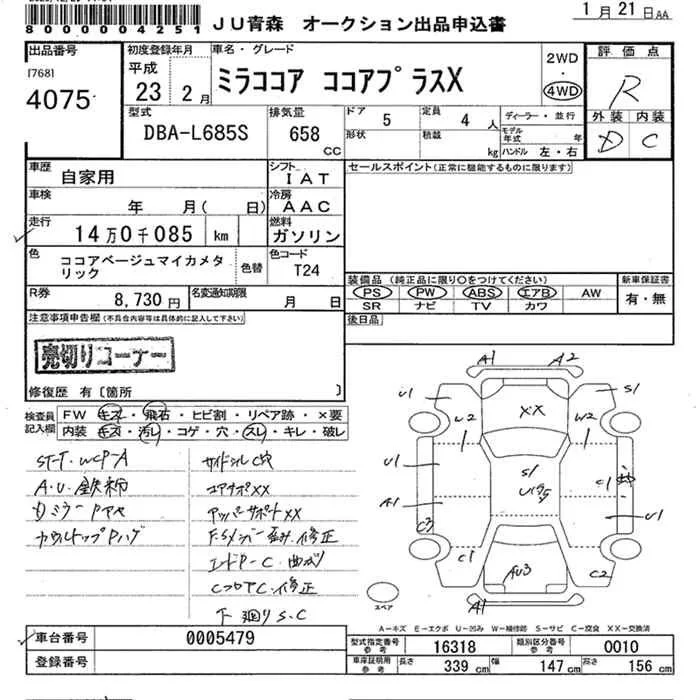 8000004251 JU青森 オークション出品申込書 1月21日AA
出品番号 初度登録年月 車名・グレード 2WD 評価点
[768] 平成 ミラココア ココアプラスX ・ R
4075 23 2月 4WD
型式 排気量 ドア 5 定員 4人 ディーラー・並行 外装 内装
DBA-L685S 658 cc 形状 積載 kg モデル年式 年 ハンドル 左・右 D C
車歴 自家用 シフト IAT セールスポイント(正常に機能するものに限ります)
車検 年 月( 日) 冷房 AAC
走行 14万0千085 km 燃料 ガソリン
色 ココアベージュマイカメタリック 色替 色コード T24
装備品 (純正品に限り○をつけてください) 新車保証書
R券 8,730円 名変通知期限 月 日 PS PW ABS エアB AW 有・無
SR ナビ TV カワ
注意事項申告欄(不具合内容等は具体的に記入して下さい) 後日品
売切りコーナー
修復歴 有〔箇所 〕
検査員記入欄 FW キズ・飛石・ヒビ割・リペア跡・×要
内装 キズ・汚レ・コゲ・穴・スレ・キレ・破レ
ST-T・WCP-A サイドシルC穴
A.U.鉄柄 コアサポXX
カウルトップPハゲ アッパーサポートXX
CフロアC.修正
下廻りS.C
A1 A2
U1 S1
XX
U2 W2
U1 S1 C1
A1 U1
C3
C1 AU3 C2
A1
スペア
A-キズ E-エクボ U-凹み W-補修跡 S-サビ C-腐食 XX-交換済
車台番号 0005479 型式指定番号 参考 16318 類別区分番号 参考 0010
登録番号 車庫証明用 参考 長さ 339cm 幅 147cm 高さ 156cm